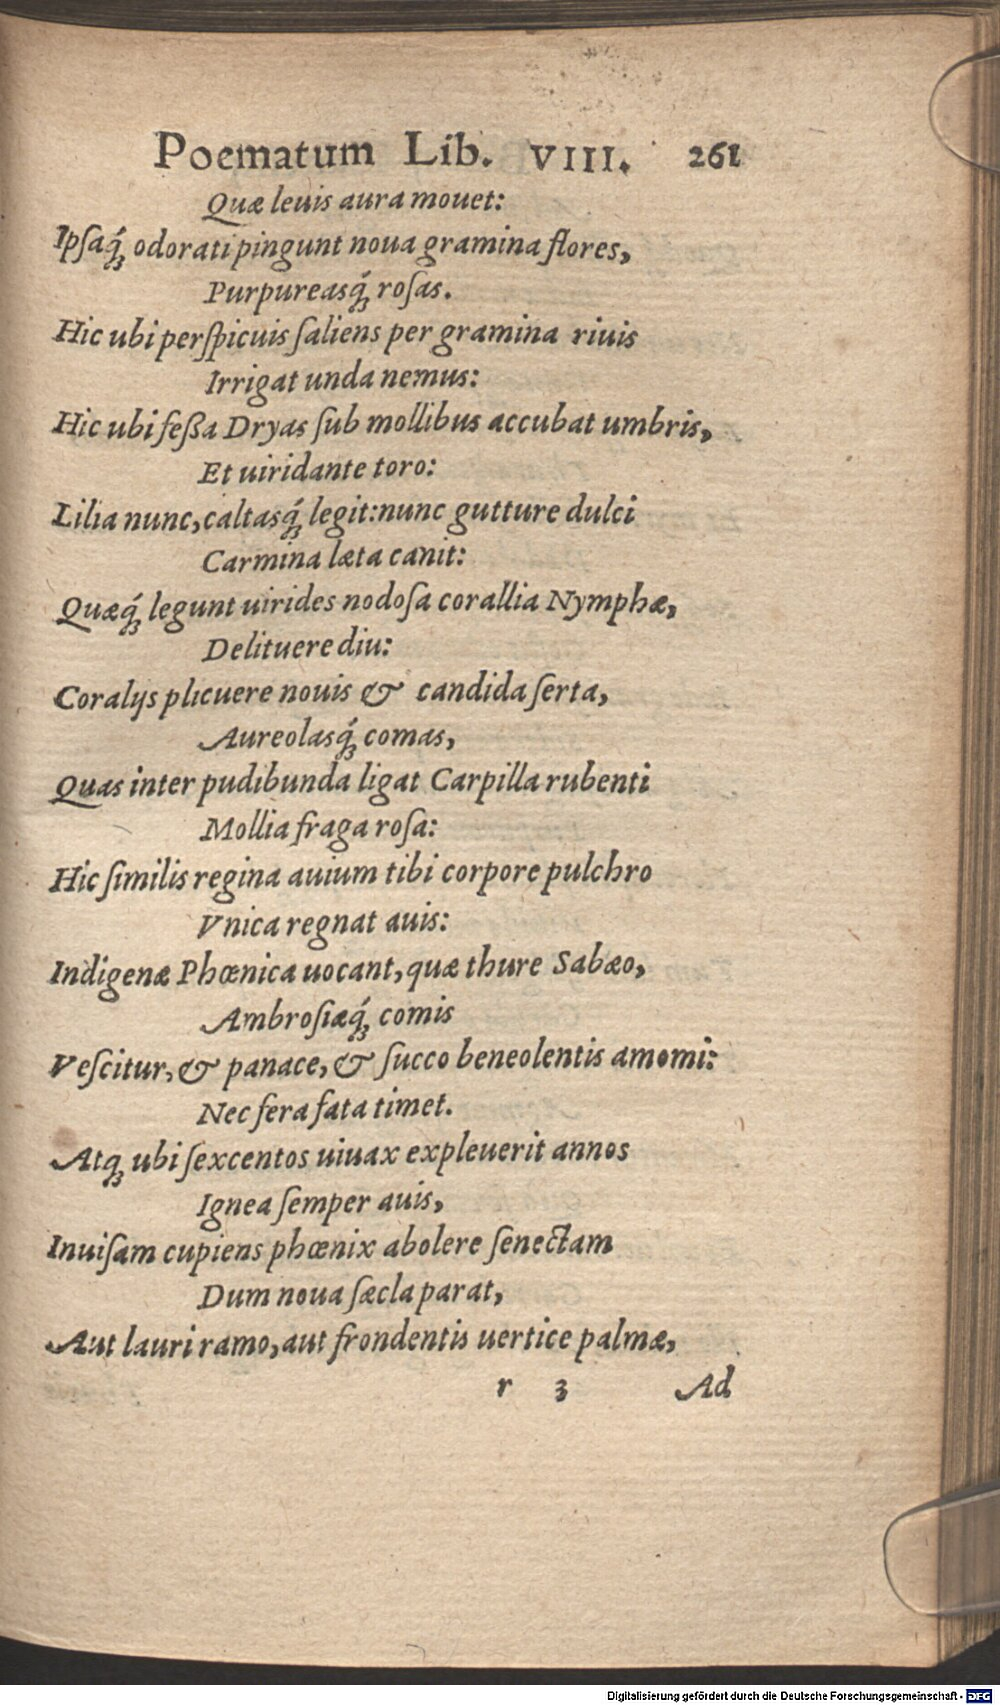 Poematum Lib. VIII. 261
Quæ leuis aura mouet:
Ipſaq́ꝫ odorati pingunt noua gramina flores,
Purpureasq́ꝫ roſas.
Hic ubi perſpicuis ſaliens per gramina riuis
Irrigat unda nemus:
Hic ubi feßa Dryas ſub mollibus accubat umbris,
Et uiridante toro:
Lilia nunc, caltasq́ꝫ legit: nunc gutture dulci
Carmina læta canit:
Quæq́ꝫ legunt uirides nodoſa corallia Nymphæ,
Delituere diu:
Coralijs plicuere nouis & candida ſerta,
Aureolasq́ꝫ comas,
Quas inter pudibunda ligat Carpilla rubenti
Mollia fraga roſa:
Hic ſimilis regina auium tibi corpore pulchro
Vnica regnat auis:
Indigenæ Phœnica uocant, quæ thure Sabæo,
Ambroſiæq́ꝫ comis
Veſcitur, & panace, & ſucco beneolentis amomi:
Nec fera fata timet.
Atqꝫ ubi ſexcentos uiuax expleuerit annos
Ignea ſemper auis,
Inuiſam cupiens phœnix abolere ſenectam
Dum noua ſæcla parat,
Aut lauri ramo, aut frondentis uertice palmæ,
r 3 Ad
Digitalisierung gefördert durch die Deutsche Forschungsgemeinschaft - DFG